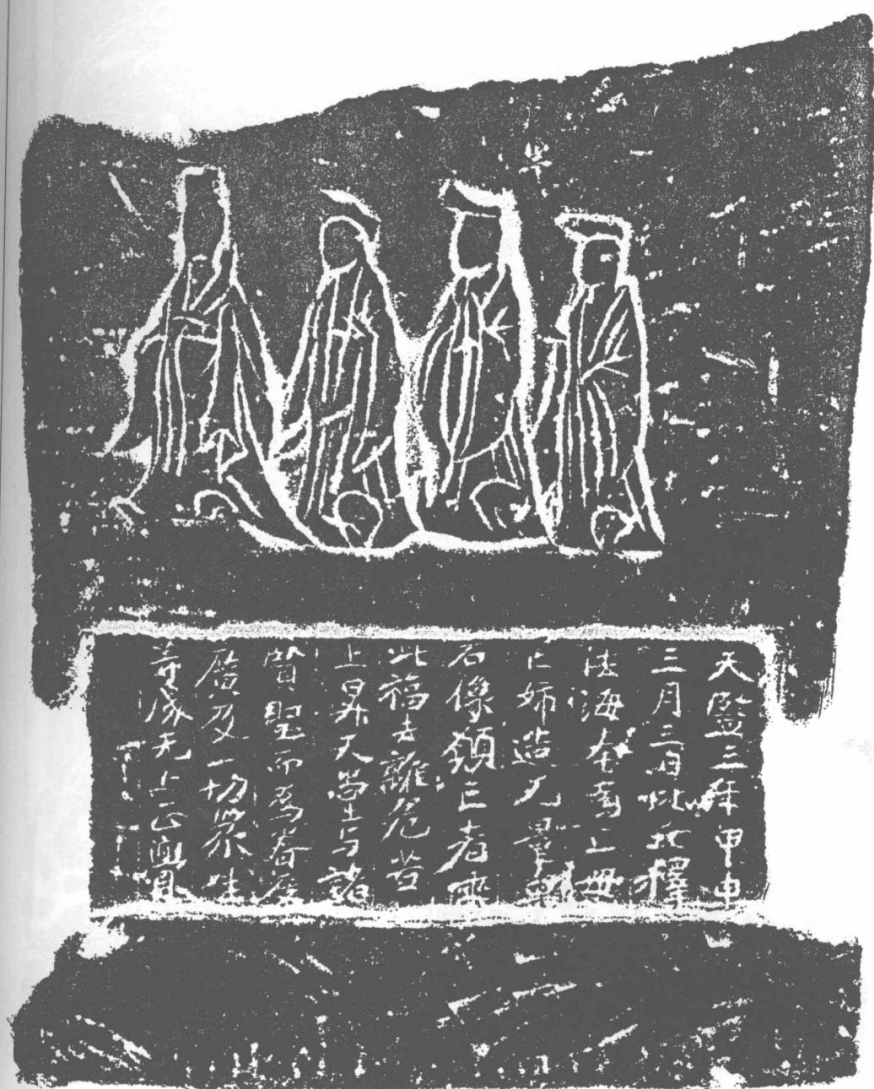 天監三年甲申
三月三日比丘釋
法海奉為亡母
亡姉造无量壽
石像願亡者乘
此福去離危苦
上昇天堂与諸
賢聖而為眷屬
廣及一切眾生
成无上正